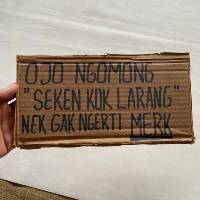 OJO NGOMONG
"SEKEN KOK LARANG"
NEK GAK NGERTI MERK